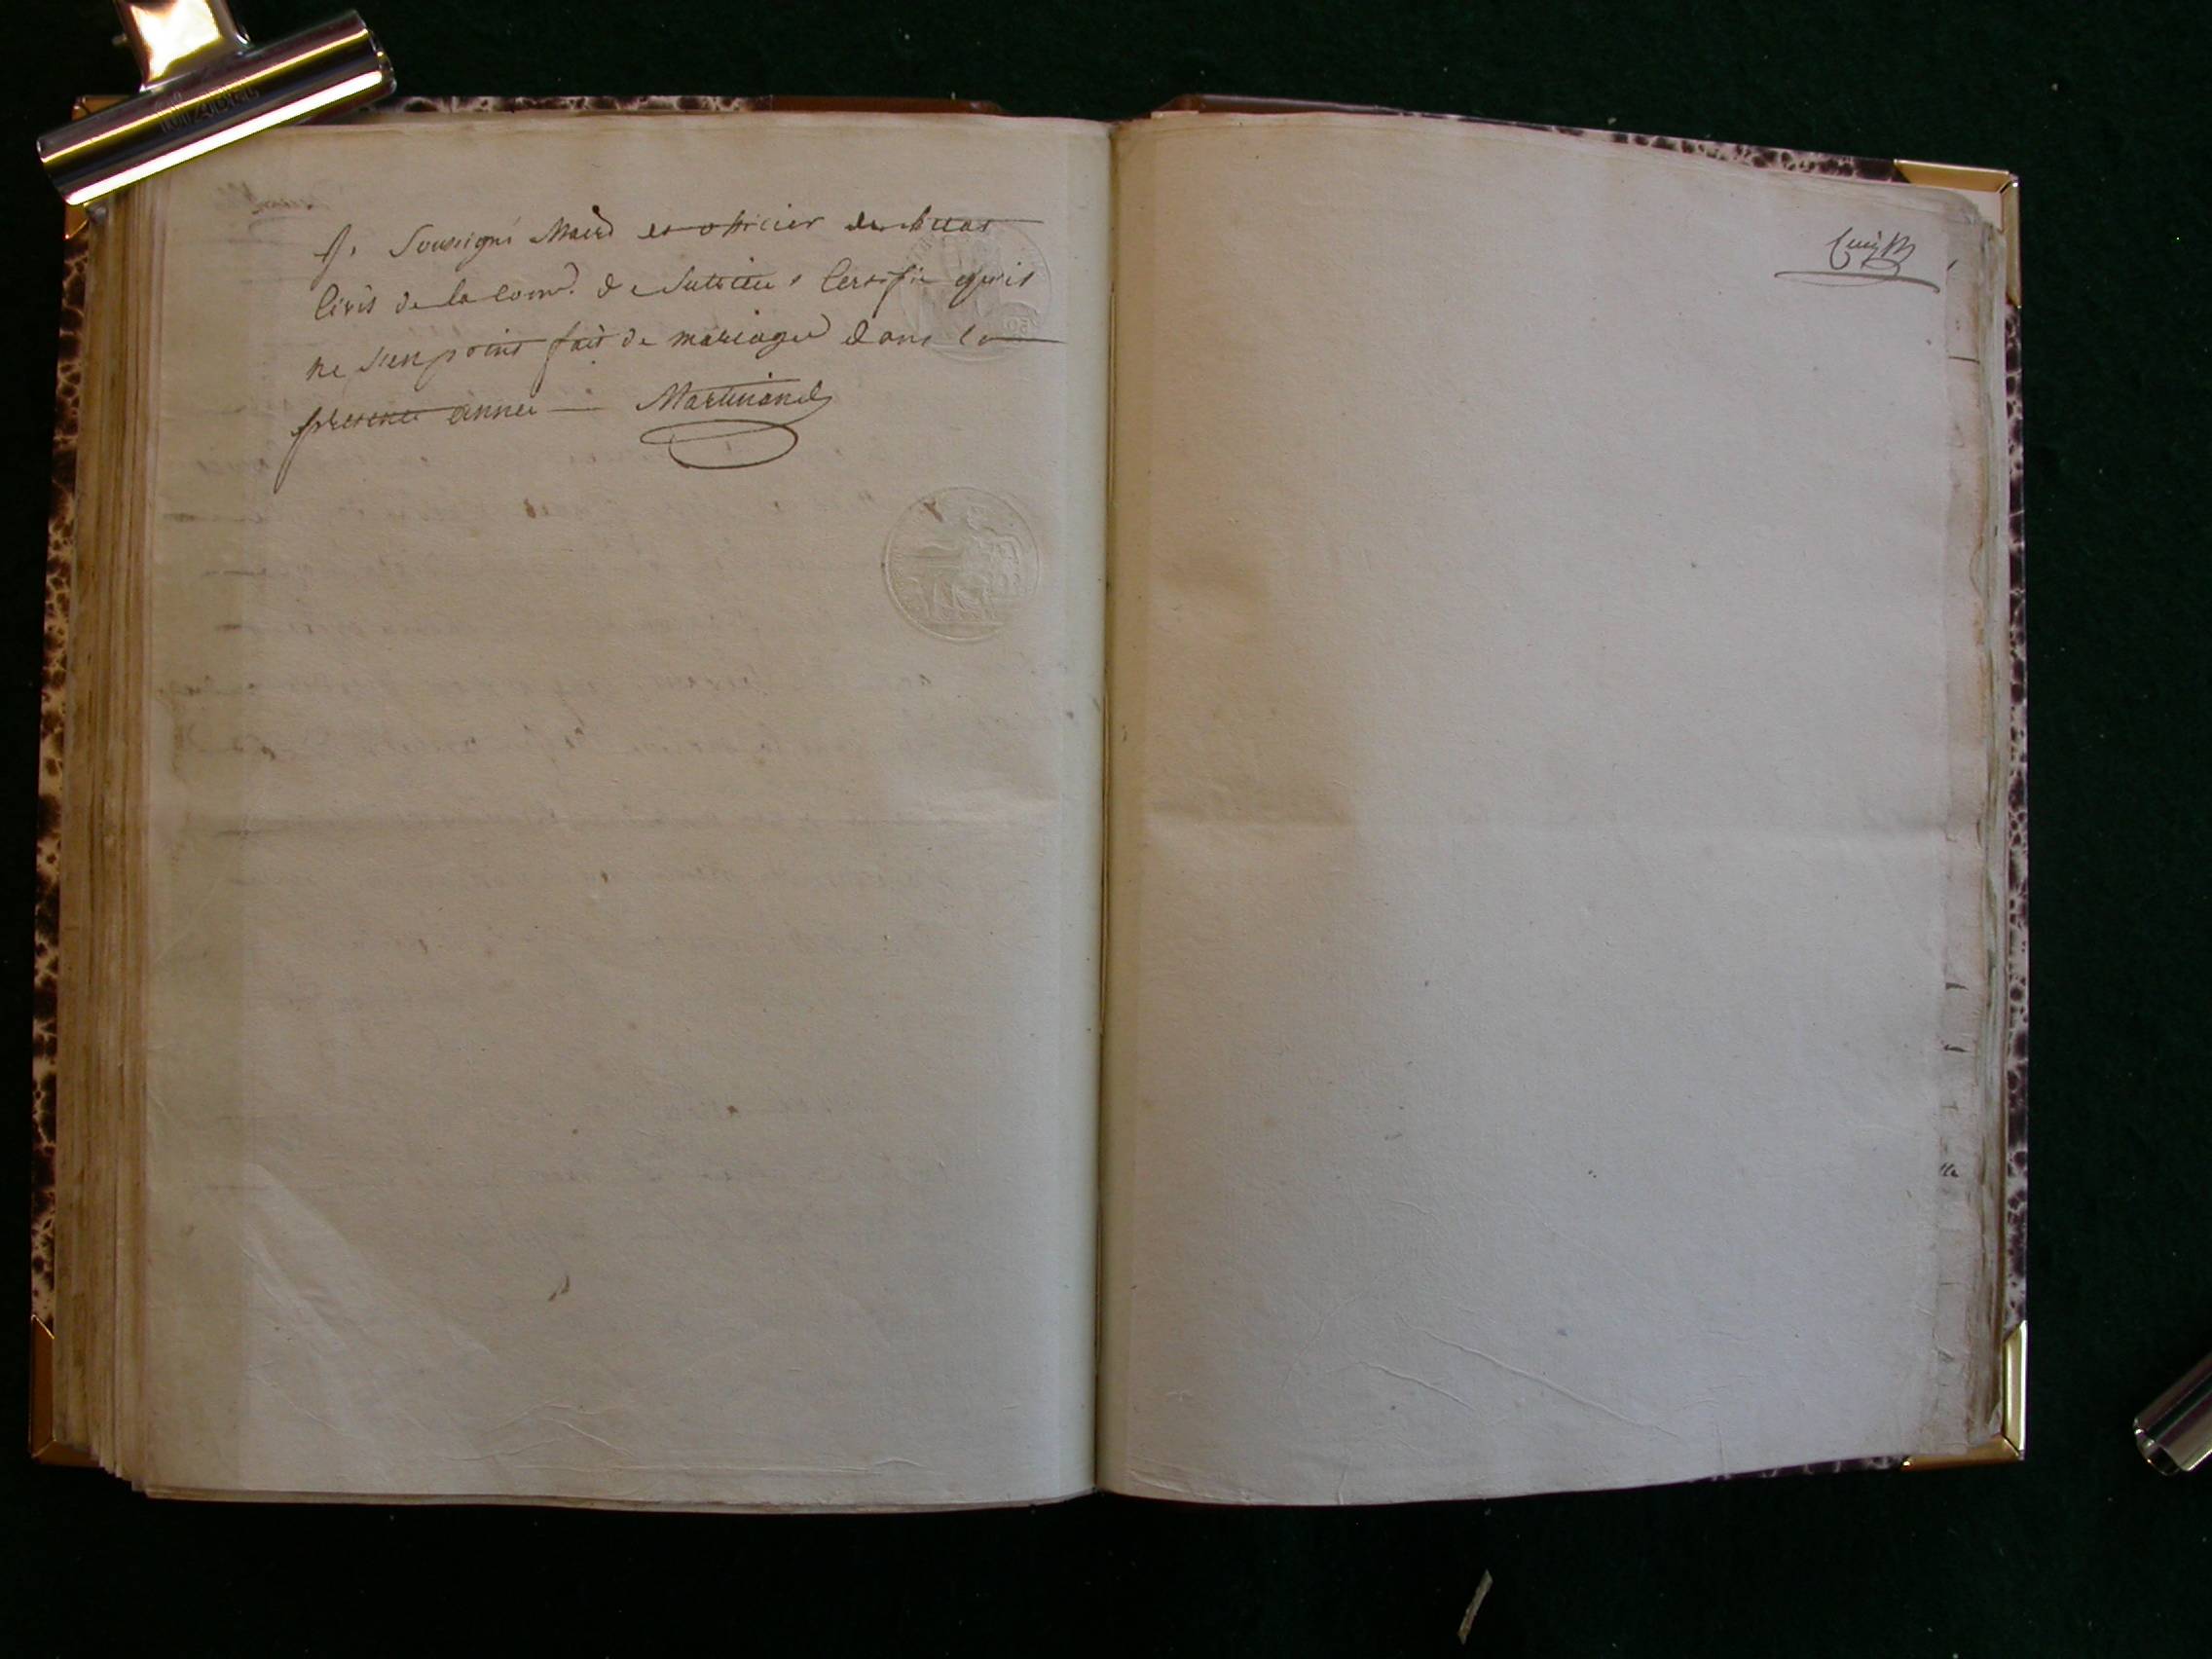 Je Soussigné Maire et officier de l'état
Civil de la Com.e de Sutrieu Certifie qu'il
ne s'en point fait de mariage dans la
presente année — Martinand